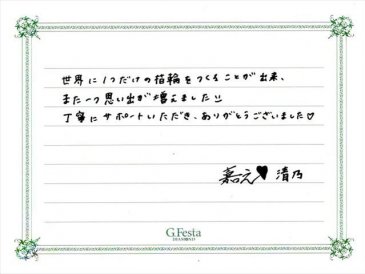 世界に1つだけの指輪をつくることが出来、
また一つ思い出が増えました!!
丁寧にサポートいただき、ありがとうございました♡
嘉え♥清乃
G.Festa
DIAMOND